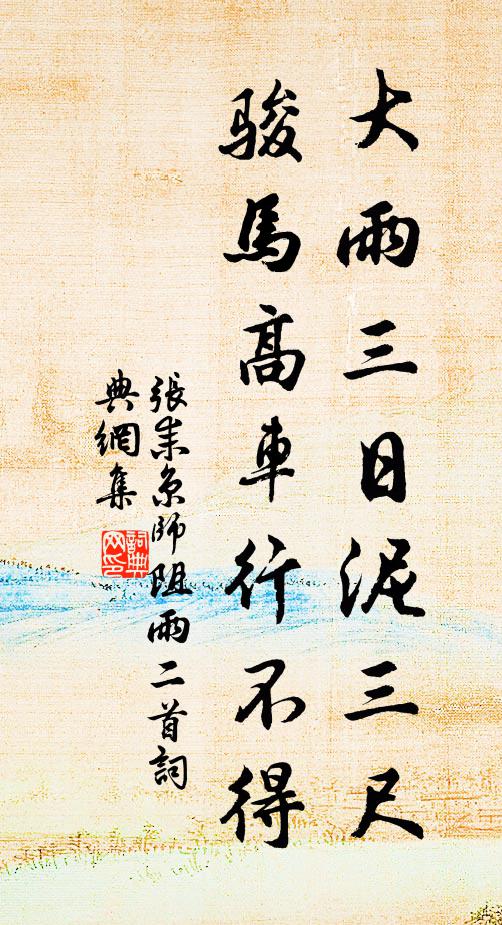 大雨三日泥三尺
骏馬高車行不得
張耒京師阻雨二首詞
典網集
詞典
网印